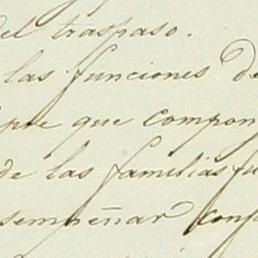 del traspaso.
las funciones de
que compon
de las familias fu
sempeñar conf